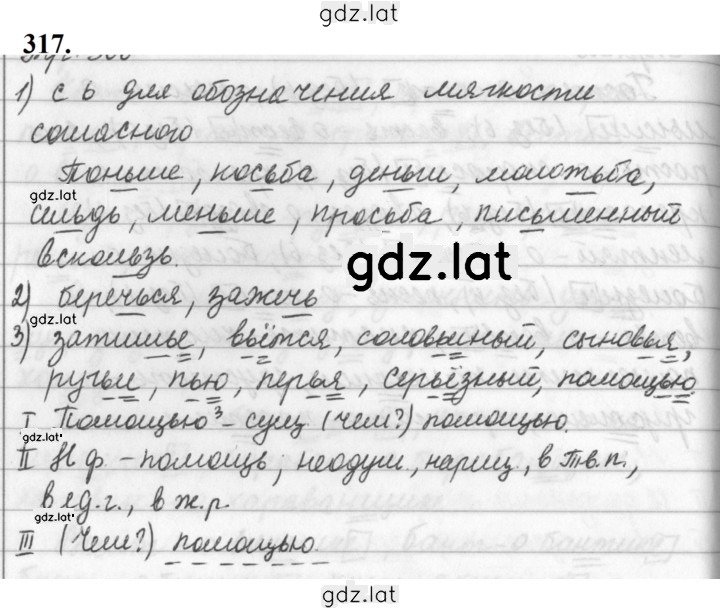 gdz.lat
317.
1) с ь для обозначения мягкости
согласного
Тоньше, косьба, деньги, молотьба,
gdz.lat
сельдь, меньше, просьба, письменный
вскользь.
gdz.lat
2) беречься, зажечь
gdz.lat
3) затишье, вьётся, соловьиный, сыновья,
ручьи, пью, перья, серьёзный, помощью.
I Помощью³ – сущ (чем?) помощью.
gdz.lat
II Н ф. – помощь, неодуш, нариц, в тв.п.,
в ед.г., в ж.р
gdz.lat
III (Чем?) помощью.
gdz.lat